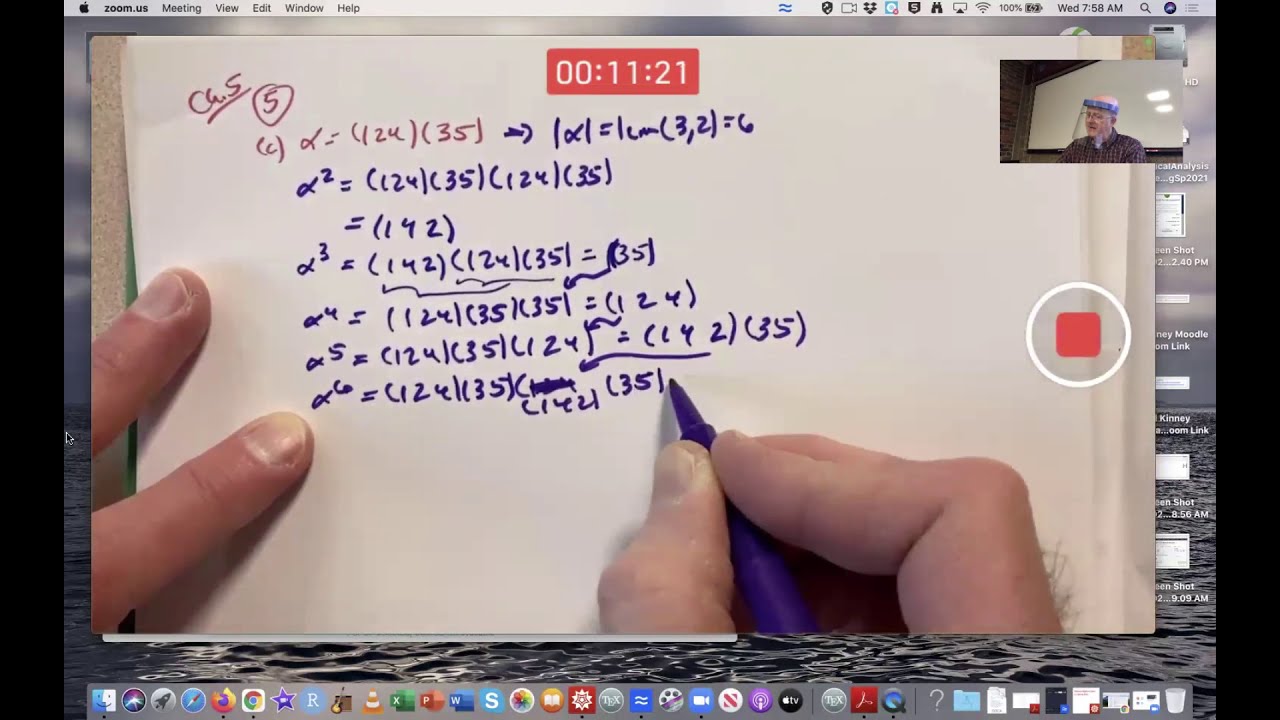 zoom.us Meeting View Edit Window Help 100% Wed 7:58 AM
00:11:21
Ch.5 5
(c) α = (124)(35) → |α| = lcm(3,2) = 6
α² = (124)(35)(124)(35)
= (142)
α³ = (142)(124)(35) = (35)
α⁴ = (124)(35)(35) = (124)
α⁵ = (124)(35)(124) = (142)(35)
α⁶ = (124)(35)(142)(35)
HD
icalAnalysis
gSp2021
een Shot
2...2.40 PM
nney Moodle
Link
Kinney
oom Link
een Shot
2...8.56 AM
een Shot
2...9.09 AM